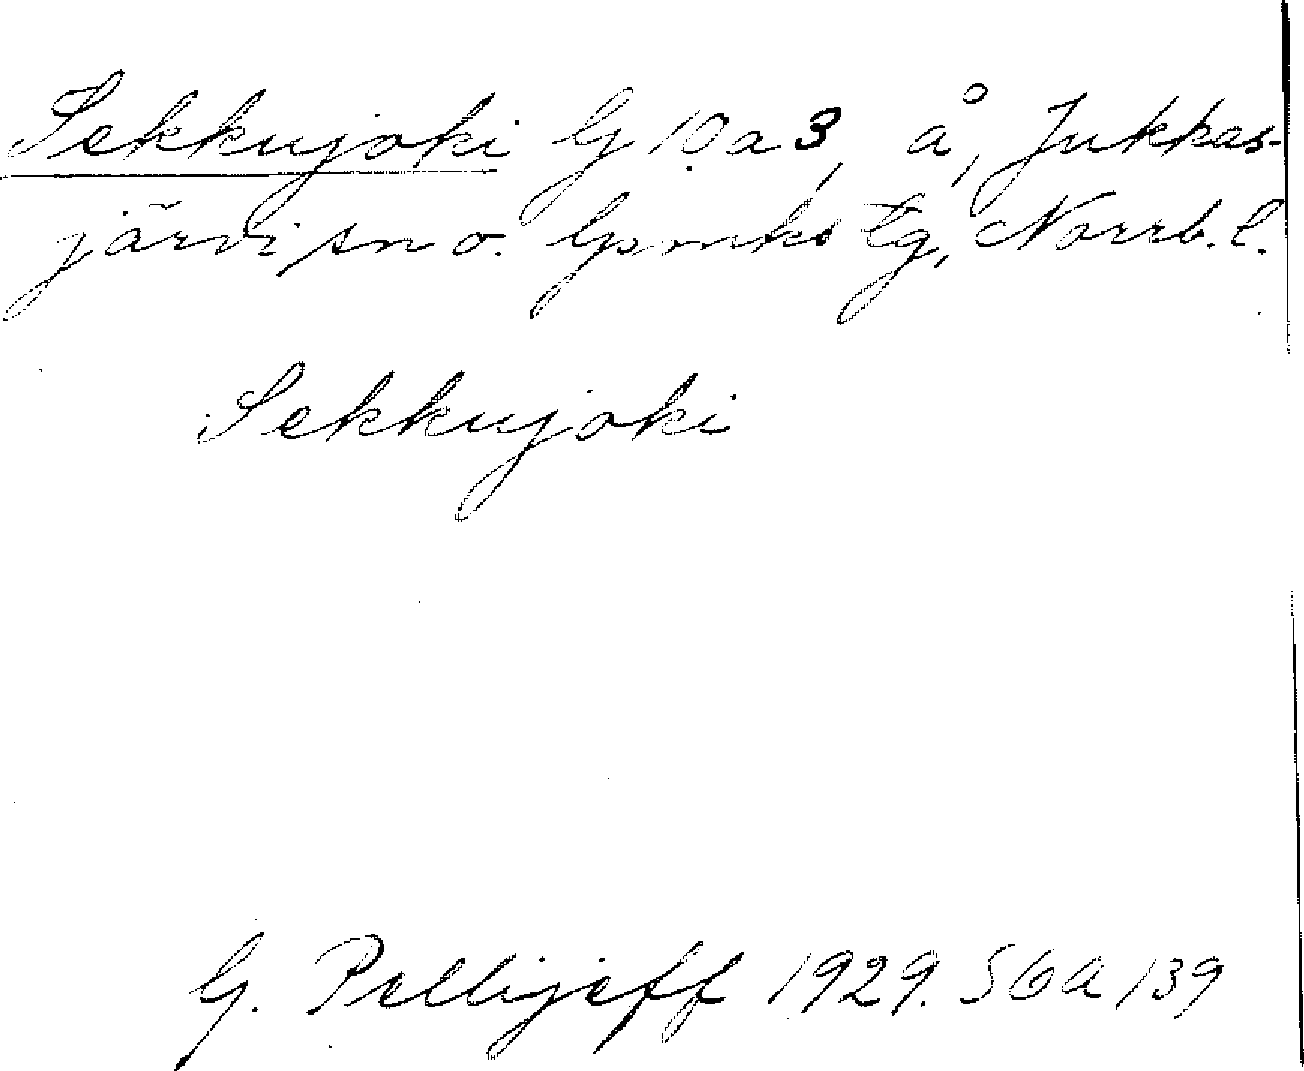 Sekkujoki G 10 a 3, å, Jukkas-
järvi sn o. Gsmks tg, Norrb. l.
Sekkujoki
G. Pellijeff 1929. S6a 139